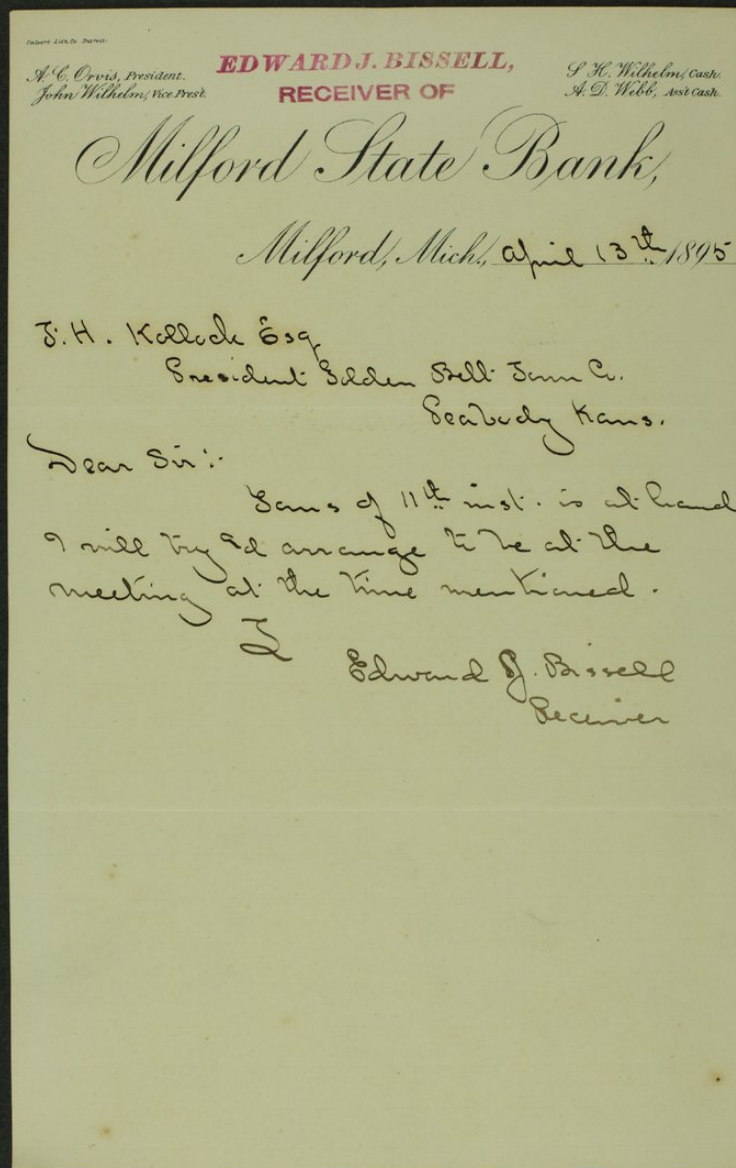 A. C. Orvis, President.
John Wilhelm, Vice Prest.
EDWARD J. BISSELL,
RECEIVER OF
S. H. Wilhelm, Cash.
A. D. Webb, Ass't Cash.
Milford State Bank,
Milford, Mich., April 13th 1895
J. H. Kollock Esq
President Golden Belt Town Co.
Peabody Kans.
Dear Sir:-
Yours of 11th inst. is at hand
I will try &d arrange to be at the
meeting at the time mentioned.
Edward J. Bissell
Receiver